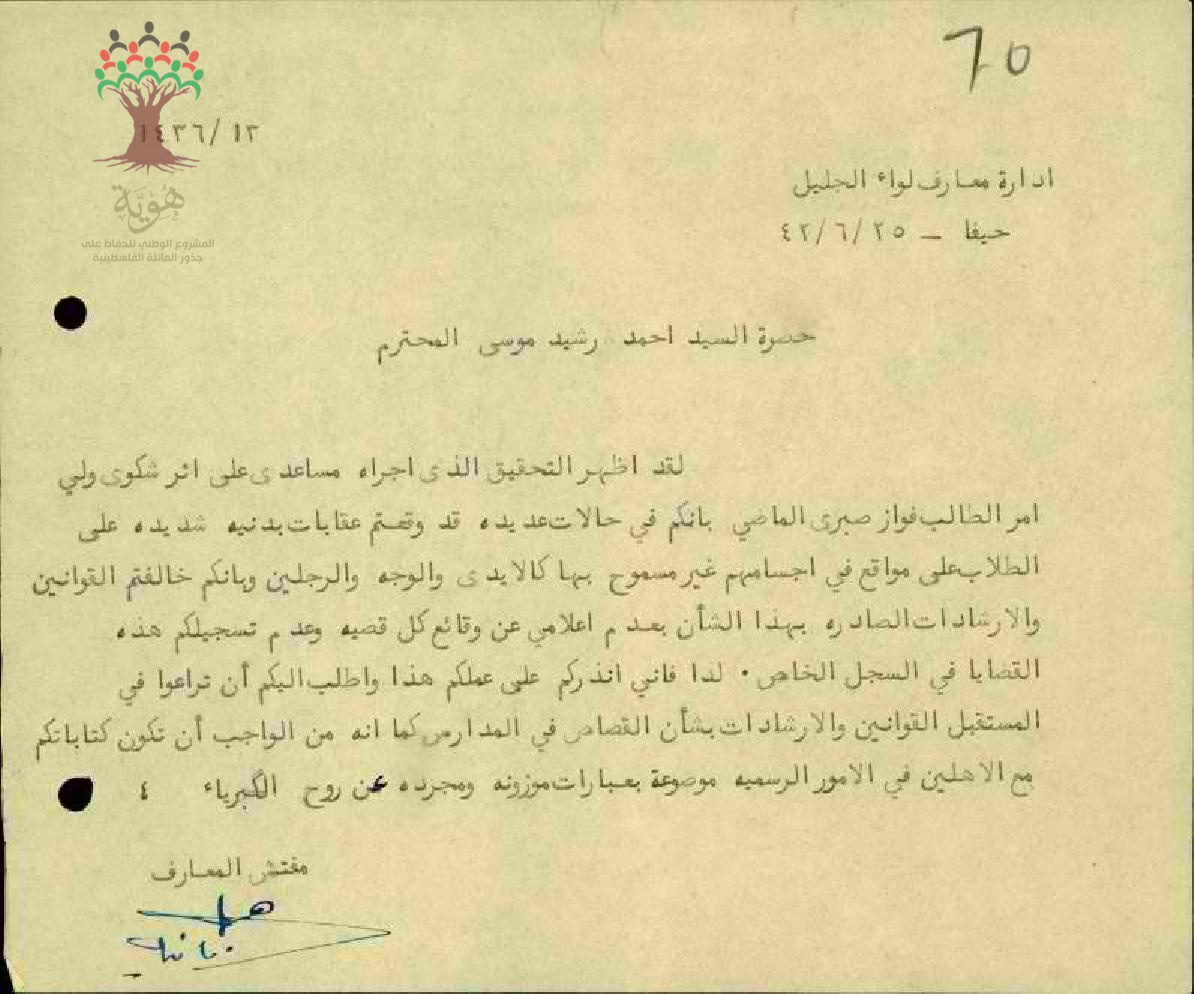 ٦٥
١٤٣٦/١٢
هُوِيَّة
المشروع الوطني للحفاظ على
جذور العائلة الفلسطينية
ادارة معارف لواء الجليل
حيفا ـ ٤٢/٦/٢٥
حضرة السيد احمد رشيد موسى المحترم
لقد اظهر التحقيق الذى اجراه مساعدى على اثر شكوى ولي
امر الطالب فواز صبرى الماضي بانكم في حالات عديده قد وقعتم عقابات بدنيه شديده على
الطلاب على مواقع في اجسامهم غير مسموح بها كالايدى والوجه والرجلين وبانكم خالفتم القوانين
والارشادات الصادره بهذا الشأن بعدم اعلامي عن وقائع كل قضيه وعدم تسجيلكم هذه
القضايا في السجل الخاص. لذا فاني انذركم على عملكم هذا واطلب اليكم أن تراعوا في
المستقبل القوانين والارشادات بشأن القصاص في المدارس كما انه من الواجب أن تكون كتاباتكم
مع الاهلين في الامور الرسميه موضوعة بعبارات موزونه ومجرده عن روح الكبرياء ٤
مفتش المعارف